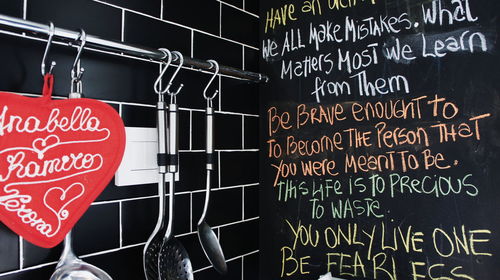 Anabella
Ramirro
Verona
Have an
We All Make Mistakes. What
Matters Most We Learn
from Them
Be Brave enought to
to Become the Person That
You were Meant to Be.
this Life is to Precious
to waste.
You Only Live One
Be Fearless